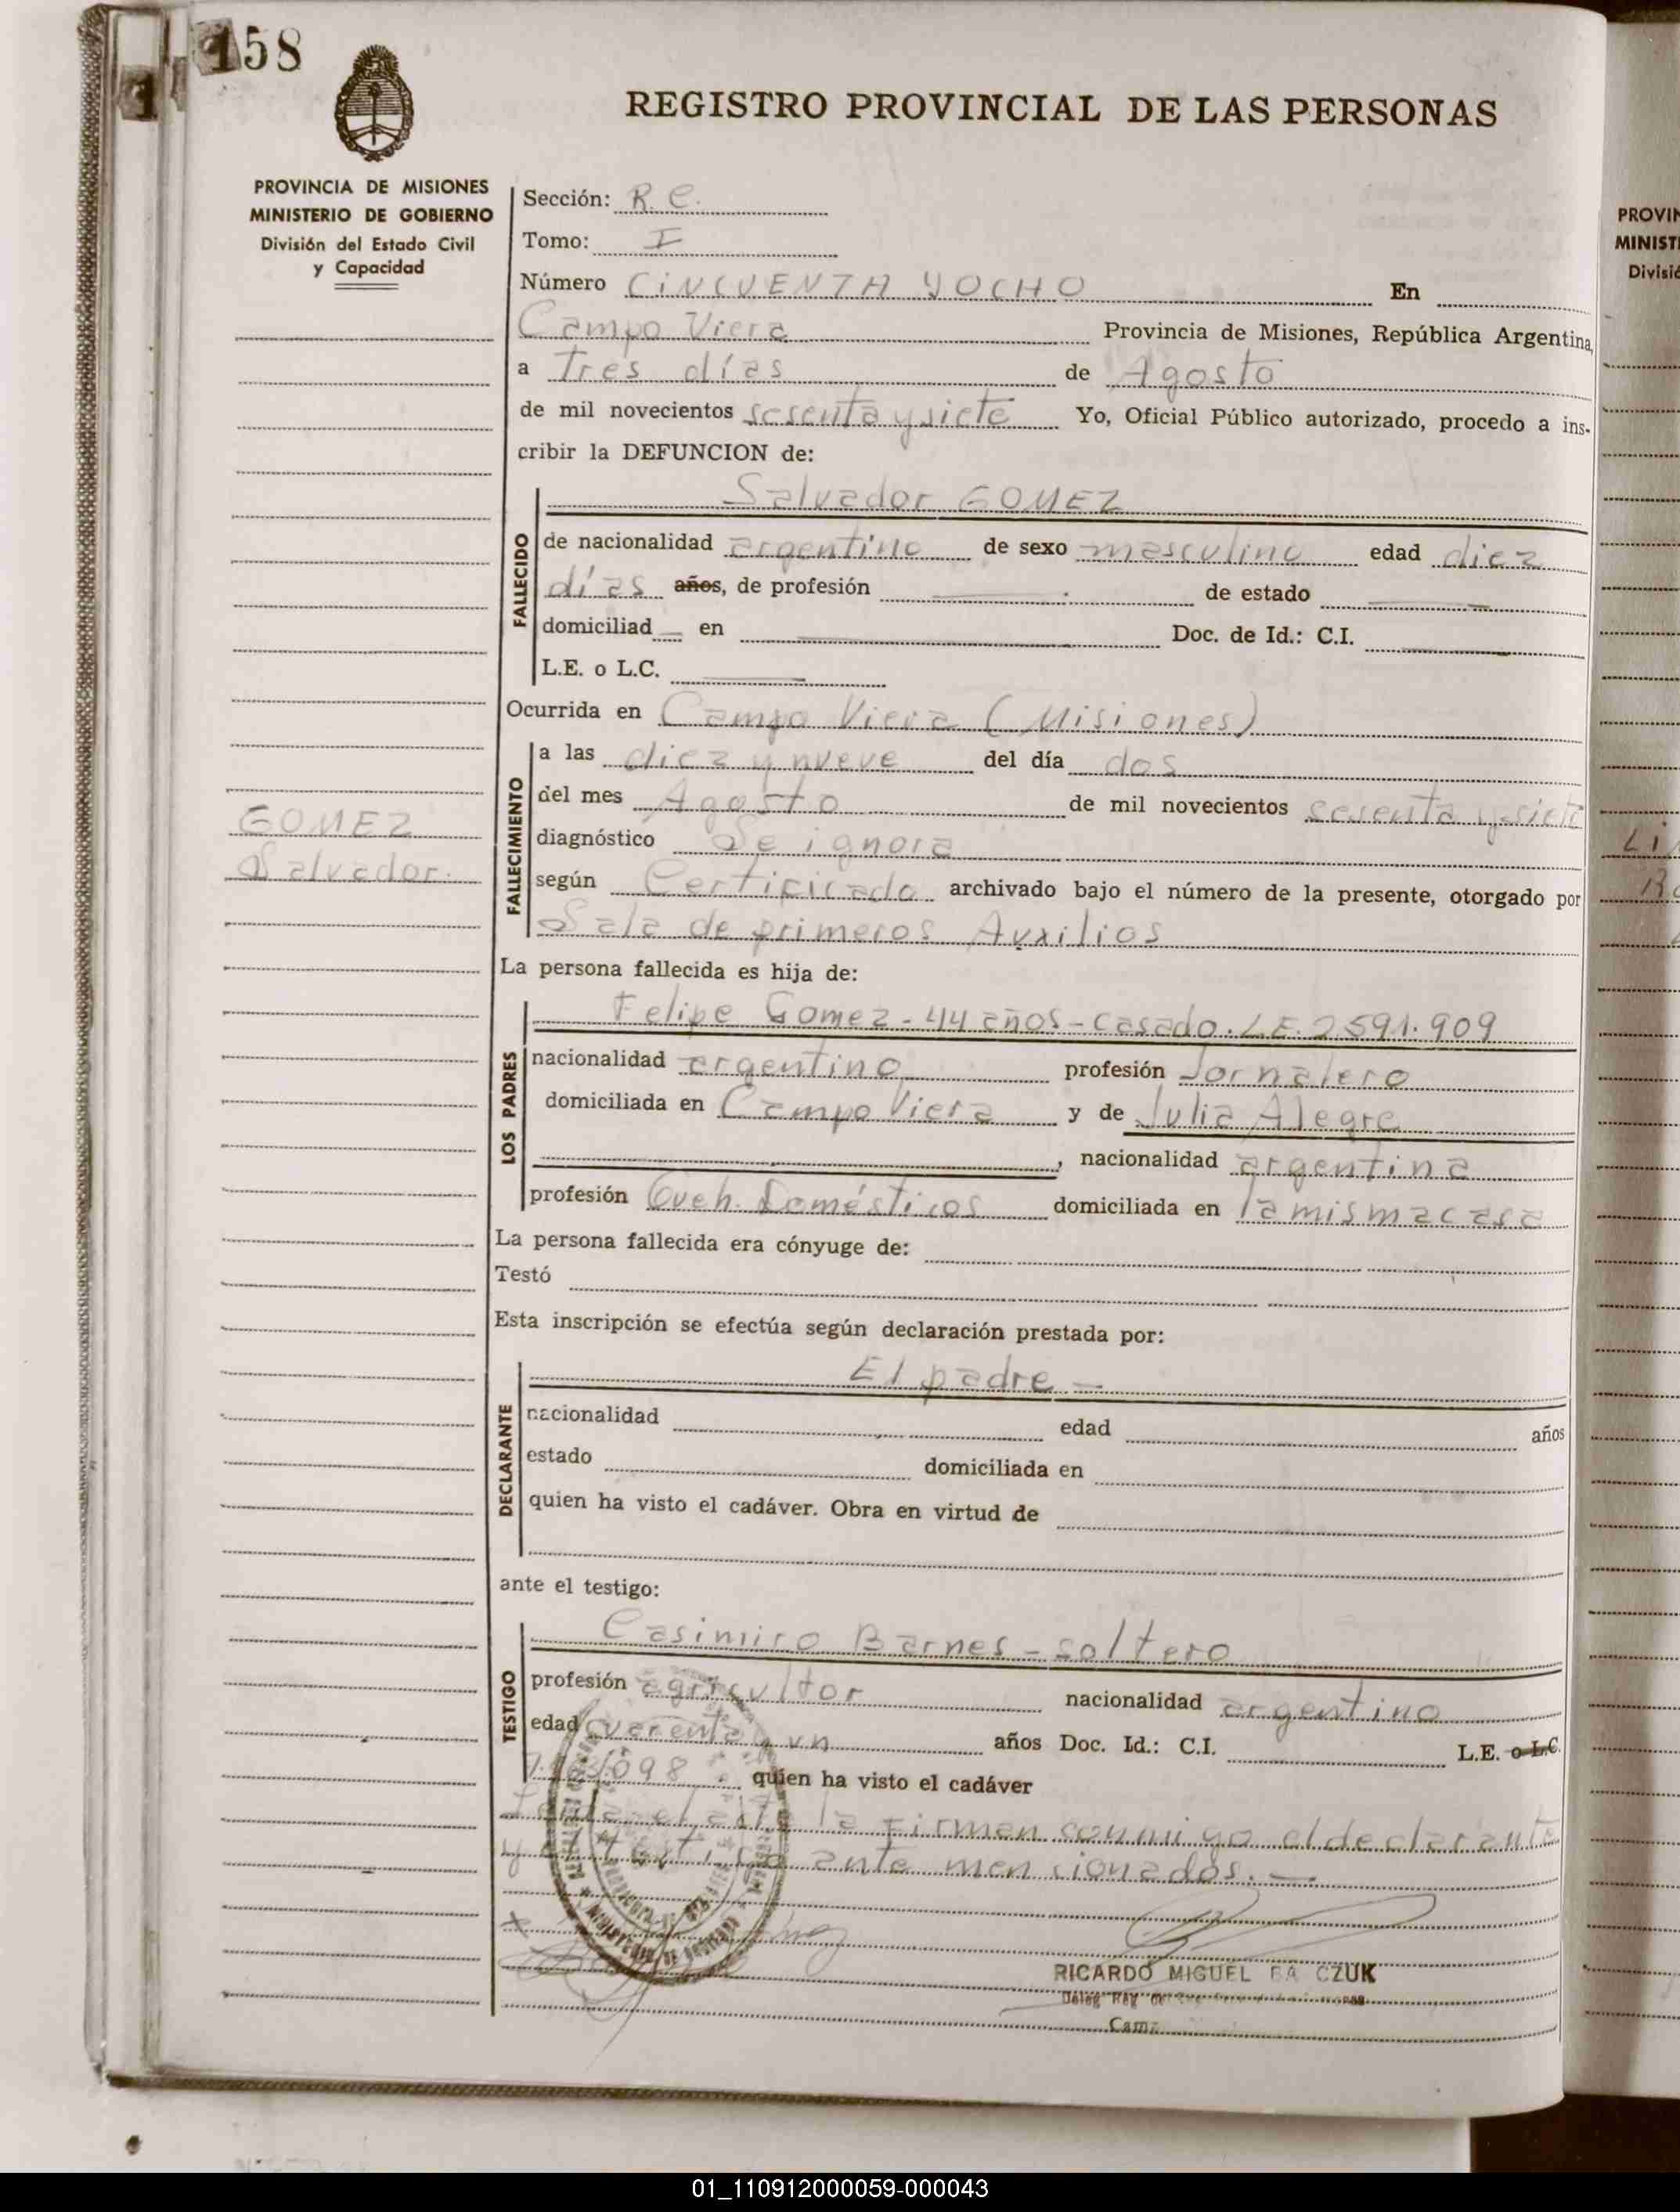 158
REGISTRO PROVINCIAL DE LAS PERSONAS
PROVINCIA DE MISIONES
MINISTERIO DE GOBIERNO
División del Estado Civil
y Capacidad
Sección: R. C.
Tomo: I
Número CINCUENTA Y OCHO En
Campo Viera Provincia de Misiones, República Argentina,
a Tres días de Agosto
de mil novecientos sesenta y siete Yo, Oficial Público autorizado, procedo a ins-
cribir la DEFUNCION de:
Salvador GOMEZ
FALLECIDO
de nacionalidad argentino de sexo masculino edad diez
días años, de profesión de estado
domiciliad en Doc. de Id.: C.I.
L.E. o L.C.
Ocurrida en Campo Viera (Misiones)
FALLECIMIENTO
a las diez y nueve del día dos
del mes Agosto de mil novecientos sesenta y siete
diagnóstico Se ignora
según Certificado archivado bajo el número de la presente, otorgado por
Sala de primeros Auxilios
GOMEZ
Salvador.
La persona fallecida es hija de:
LOS PADRES
Felipe Gomez - 44 años - Casado. L.E. 2.591.909
nacionalidad argentino profesión Jornalero
domiciliada en Campo Viera y de Julia Alegre
, nacionalidad argentina
profesión Queh. Domésticos domiciliada en la misma casa
La persona fallecida era cónyuge de:
Testó
Esta inscripción se efectúa según declaración prestada por:
DECLARANTE
El padre -
nacionalidad edad años
estado domiciliada en
quien ha visto el cadáver. Obra en virtud de
ante el testigo:
TESTIGO
Casimiro Barnes - soltero
profesión agricultor nacionalidad argentino
edad cuarenta y un años Doc. Id.: C.I. L.E. o L.C.
quien ha visto el cadáver
el acta la firman conmigo el declarante
y el testigo ante mencionados. -
RICARDO MIGUEL
PROVIN
MINISTE
Divisió
01_110912000059-000043